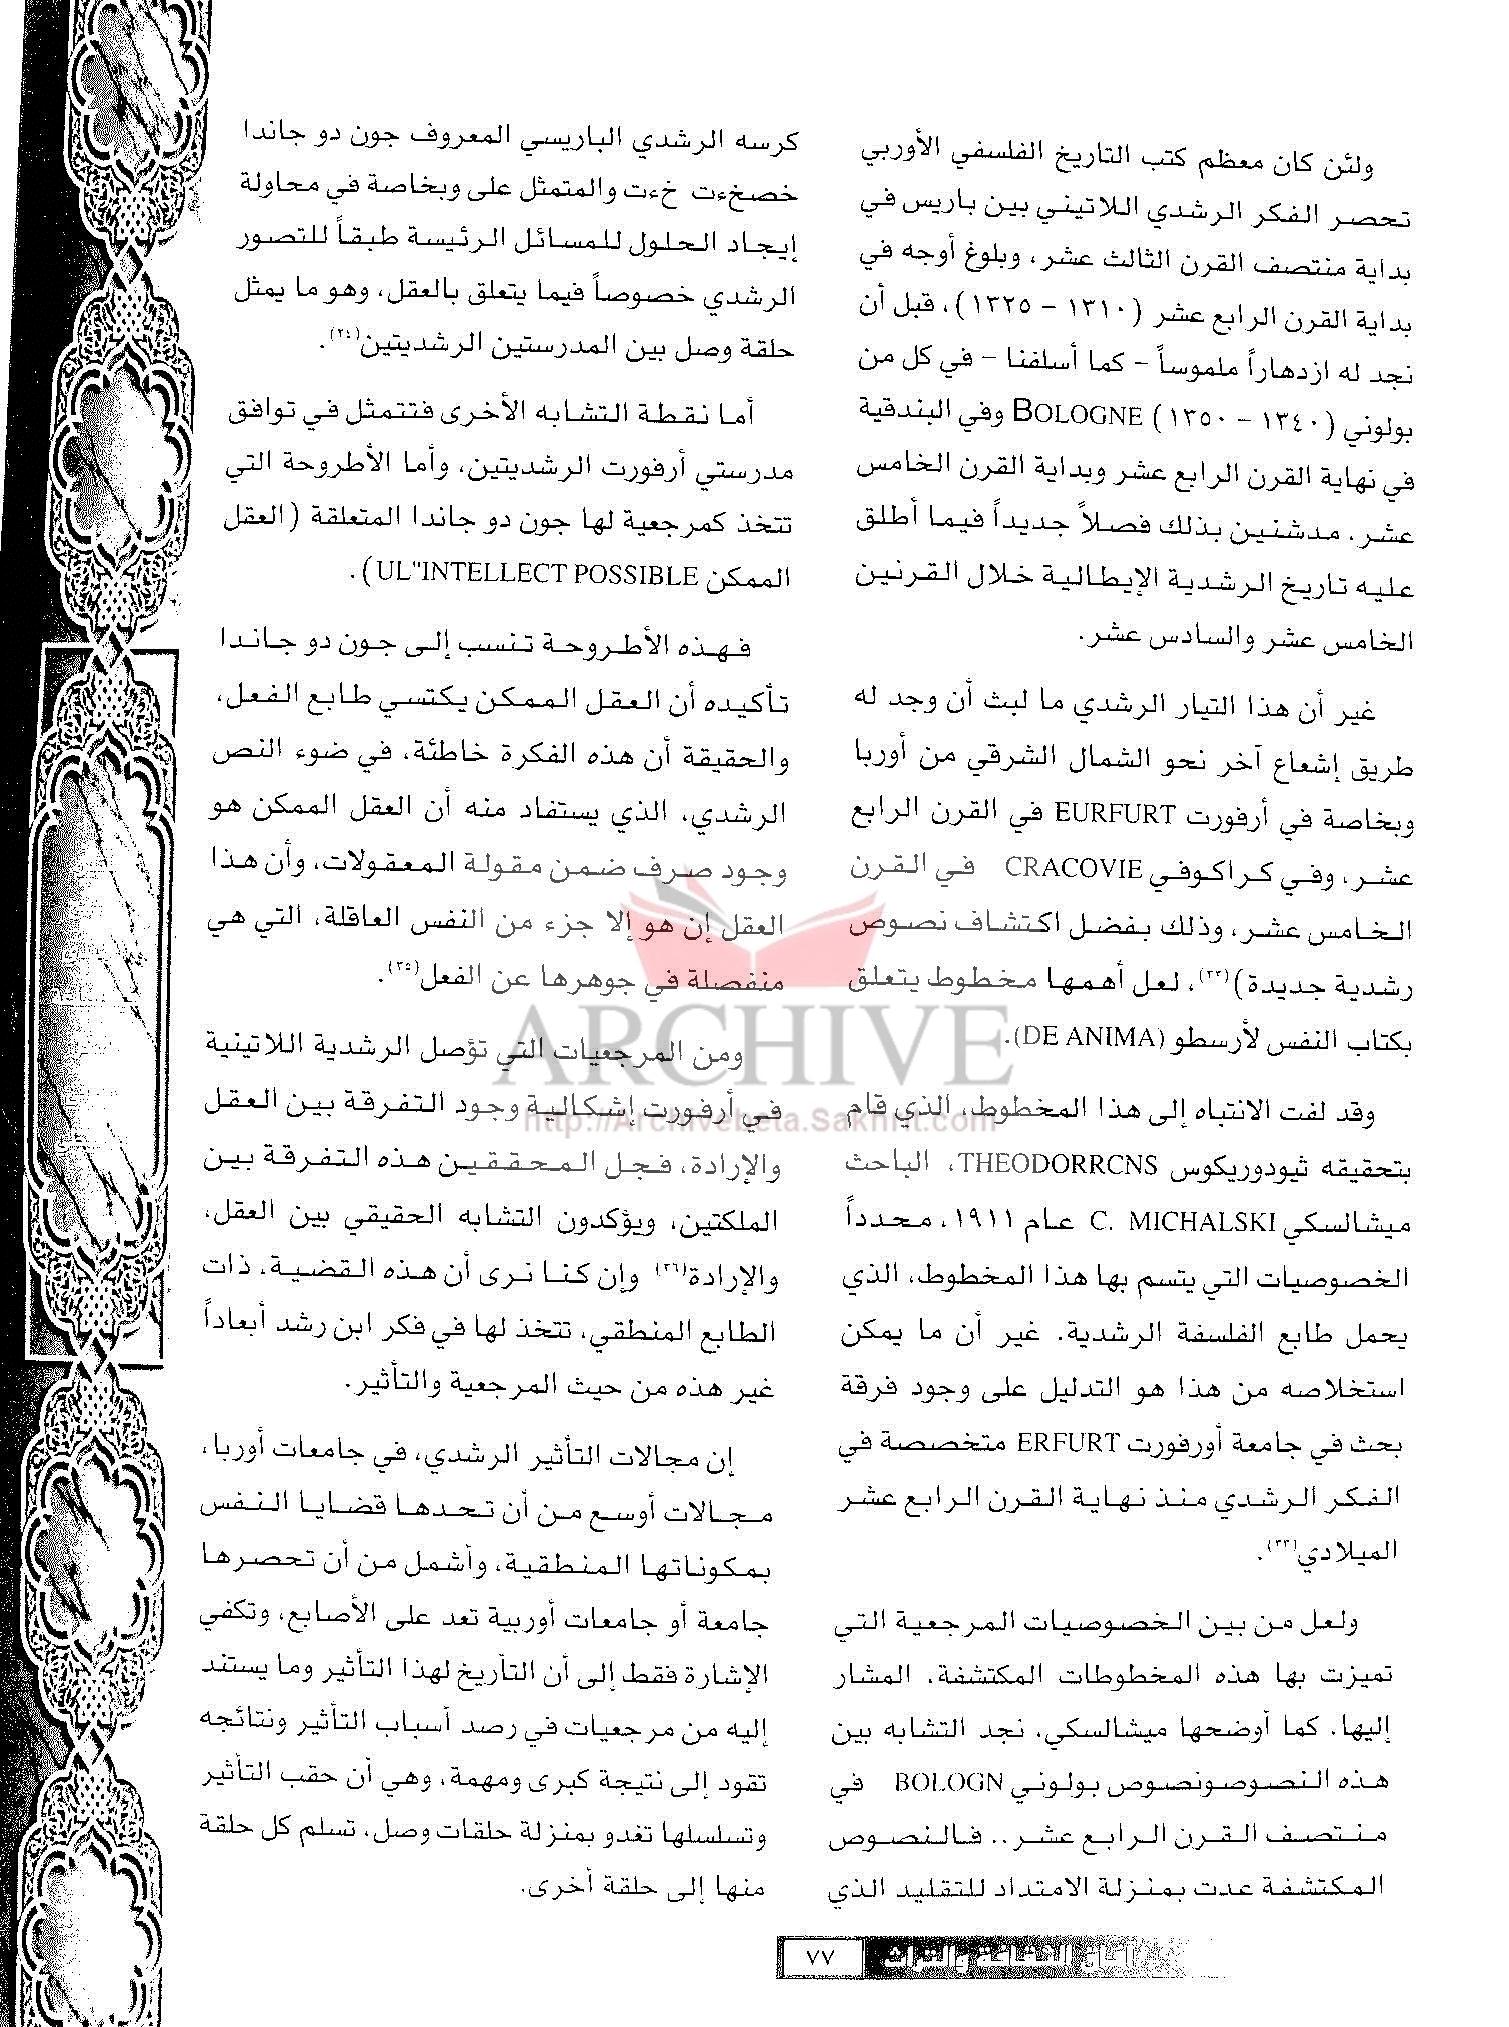 ولئن كان معظم كتب التاريخ الفلسفي الأوربي
تحصر الفكر الرشدي اللاتيني بين باريس في
بداية منتصف القرن الثالث عشر، وبلوغ أوجه في
بداية القرن الرابع عشر (١٣١٠ - ١٣٢٥)، قبل أن
نجد له ازدهاراً ملموساً - كما أسلفنا - في كل من
بولوني BOLOGNE (١٣٤٠ - ١٣٥٠) وفي البندقية
في نهاية القرن الرابع عشر وبداية القرن الخامس
عشر. مدشنين بذلك فصلاً جديداً فيما أطلق
عليه تاريخ الرشدية الإيطالية خلال القرنين
الخامس عشر والسادس عشر.
غير أن هذا التيار الرشدي ما لبث أن وجد له
طريق إشعاع آخر نحو الشمال الشرقي من أوربا
وبخاصة في أرفورت EURFURT في القرن الرابع
عشر، وفي كراكوفي CRACOVIE في القرن
الخامس عشر، وذلك بفضل اكتشاف نصوص
رشدية جديدة)(٢٢)، لعل أهمها مخطوط يتعلق
بكتاب النفس لأرسطو (DE ANIMA).
وقد لفت الانتباه إلى هذا المخطوط، الذي قام
بتحقيقه ثيودوريكوس THEODORRCNS، الباحث
ميشالسكي C. MICHALSKI عام ١٩١١، محدداً
الخصوصيات التي يتسم بها هذا المخطوط، الذي
يحمل طابع الفلسفة الرشدية. غير أن ما يمكن
استخلاصه من هذا هو التدليل على وجود فرقة
بحث في جامعة أورفورت ERFURT متخصصة في
الفكر الرشدي منذ نهاية القرن الرابع عشر
الميلادي(٢٣).
ولعل من بين الخصوصيات المرجعية التي
تميزت بها هذه المخطوطات المكتشفة. المشار
إليها. كما أوضحها ميشالسكي. نجد التشابه بين
هذه النصوصونصوص بولوني BOLOGN في
منتصف القرن الرابع عشر.. فالنصوص
المكتشفة عدت بمنزلة الامتداد للتقليد الذي
كرسه الرشدي الباريسي المعروف جون دو جاندا
خصخءت خءت والمتمثل على وبخاصة في محاولة
إيجاد الحلول للمسائل الرئيسة طبقاً للتصور
الرشدي خصوصاً فيما يتعلق بالعقل، وهو ما يمثل
حلقة وصل بين المدرستين الرشديتين(٢٤).
أما نقطة التشابه الأخرى فتتمثل في توافق
مدرستي أرفورت الرشديتين، وأما الأطروحة التي
تتخذ كمرجعية لها جون دو جاندا المتعلقة (العقل
الممكن UL"INTELLECT POSSIBLE).
فهذه الأطروحة تنسب إلى جون دو جاندا
تأكيده أن العقل الممكن يكتسي طابع الفعل،
والحقيقة أن هذه الفكرة خاطئة، في ضوء النص
الرشدي، الذي يستفاد منه أن العقل الممكن هو
وجود صرف ضمن مقولة المعقولات، وأن هذا
العقل إن هو إلا جزء من النفس العاقلة، التي هي
منفصلة في جوهرها عن الفعل(٢٥).
ومن المرجعيات التي تؤصل الرشدية اللاتينية
في أرفورت إشكالية وجود التفرقة بين العقل
والإرادة، فجل المحققين هذه التفرقة بين
الملكتين، ويؤكدون التشابه الحقيقي بين العقل،
والإرادة(٢٦) وإن كنا نرى أن هذه القضية، ذات
الطابع المنطقي، تتخذ لها في فكر ابن رشد أبعاداً
غير هذه من حيث المرجعية والتأثير.
إن مجالات التأثير الرشدي، في جامعات أوربا،
مجالات أوسع من أن تحدها قضايا النفس
بمكوناتها المنطقية، وأشمل من أن تحصرها
جامعة أو جامعات أوربية تعد على الأصابع، وتكفي
الإشارة فقط إلى أن التأريخ لهذا التأثير وما يستند
إليه من مرجعيات في رصد أسباب التأثير ونتائجه
تقود إلى نتيجة كبرى ومهمة، وهي أن حقب التأثير
وتسلسلها تغدو بمنزلة حلقات وصل، تسلم كل حلقة
منها إلى حلقة أخرى.
ARCHIVE
http://Archivebeta.Sakhrit.com
٧٧